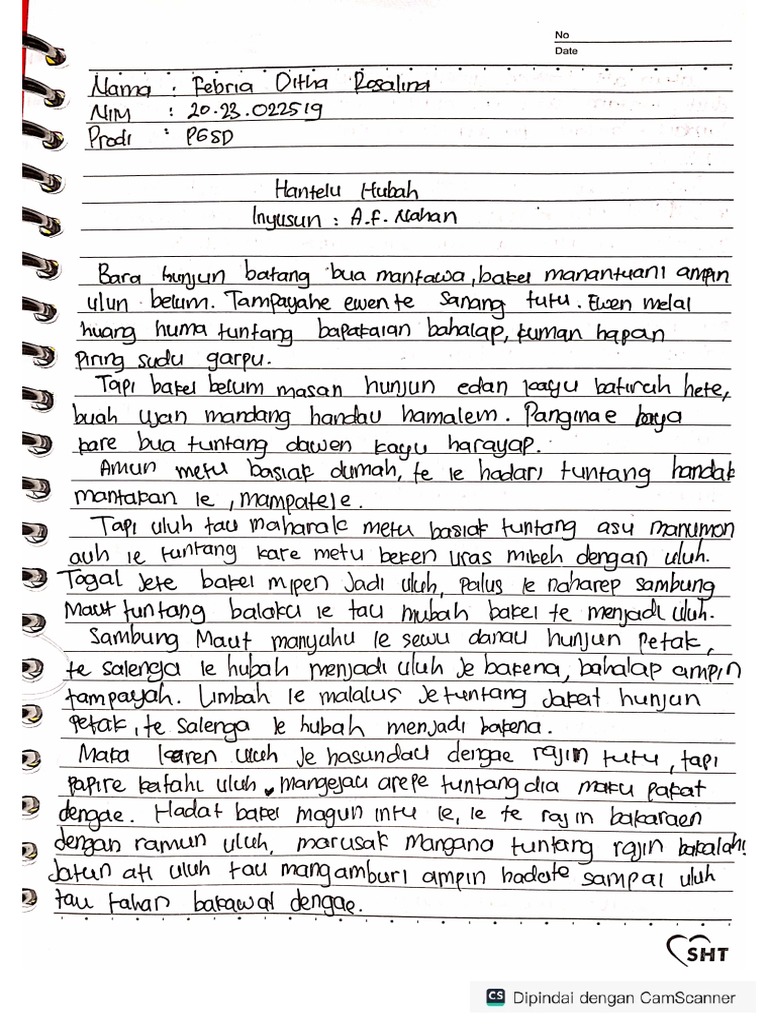 No
Date
Nama : Febria Ditha Rosalina
NIM : 20.23.022519
Prodi : PGSD
Hantelu Hubah
Inyusun : A.F. Nahan
Bara hunjun batang bua mantawa, bakei manantuani ampin
ulun belum. Tampayahe ewen te sanang tutu. Ewen melai
huang huma tuntang bapakaian bahalap, kuman hapan
piring sudu garpu.
Tapi bakei belum masan hunjun edan kayu baturuh hete,
buah ujan mandang handau hamalem. Panginae baya
kare bua tuntang dawen kayu harayap.
Amun metu basiak dumah, te ie hadari tuntang handak
mantakan ie, mampateie.
Tapi uluh tau maharak metu basiak tuntang asu manumon
auh ie tuntang kare metu beken uras mikeh dengan uluh.
Togal jete bakei mipen jadi uluh, palus ie naharep sambung
Maut tuntang balaku ie tau mubah bakei te menjadi uluh.
Sambung Maut manyahu ie sewu danau hunjun petak,
te salenga ie hubah menjadi uluh je bakena, bahalap ampin
tampayah. Limbah ie malalus je tuntang jakat hunjun
petak, te salenga ie hubah menjadi bakena.
Maka karen uluh je hasundau dengae rajin tutu, tapi
papire katahi uluh mangejau arepe tuntang dia maku pakat
dengae. Hadat bakei magun intu ie, ie te rajin bakaraen
dengan ramun uluh, marusak mangana tuntang rajin bakalahi
Jatun ati uluh tau mangamburi ampin hadate sampai uluh
tau tahan bakawal dengae.
SHT
CS Dipindai dengan CamScanner